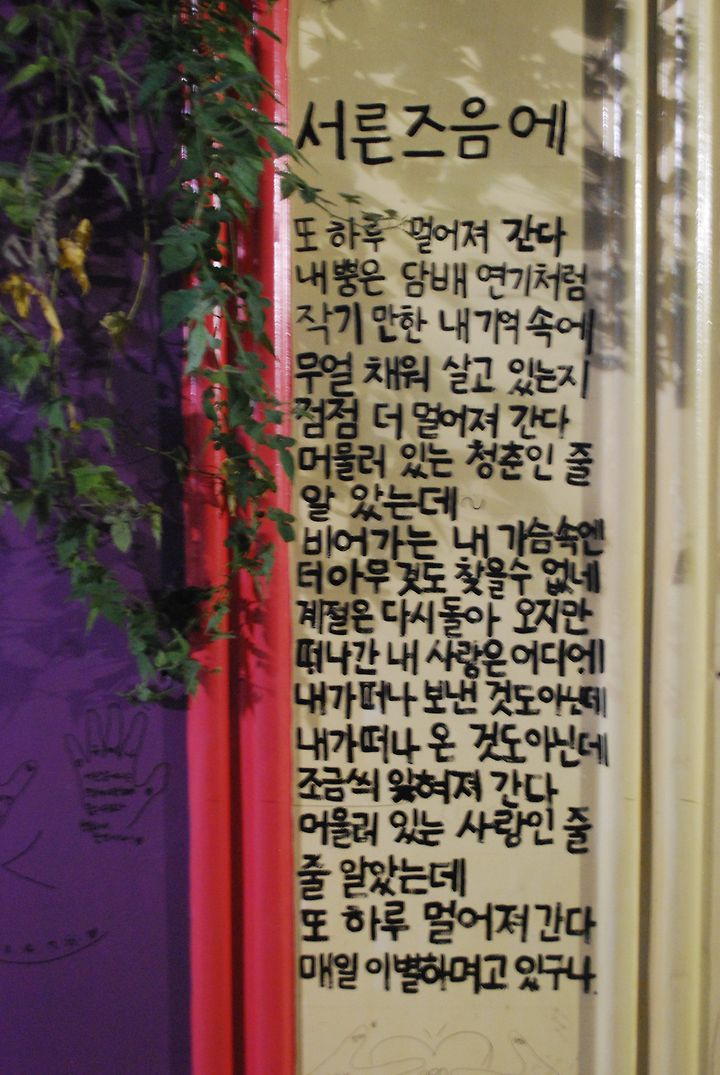 서른 즈음에
또 하루 멀어져 간다
내뿜은 담배 연기처럼
작기만한 내 기억 속에
무얼 채워 살고 있는지
점점 더 멀어져 간다
머물러 있는 청춘인 줄
알 았는데~
비어가는 내 가슴속엔
더 아무것도 찾을수 없네
계절은 다시 돌아 오지만
떠나간 내 사랑은 어디에
내가 떠나 보낸 것도 아닌데
내가 떠나 온 것도 아닌데
조금씩 잊혀져 간다
머물러 있는 사랑인 줄
줄 알았는데
또 하루 멀어져 간다
매일 이별하며고 있구나